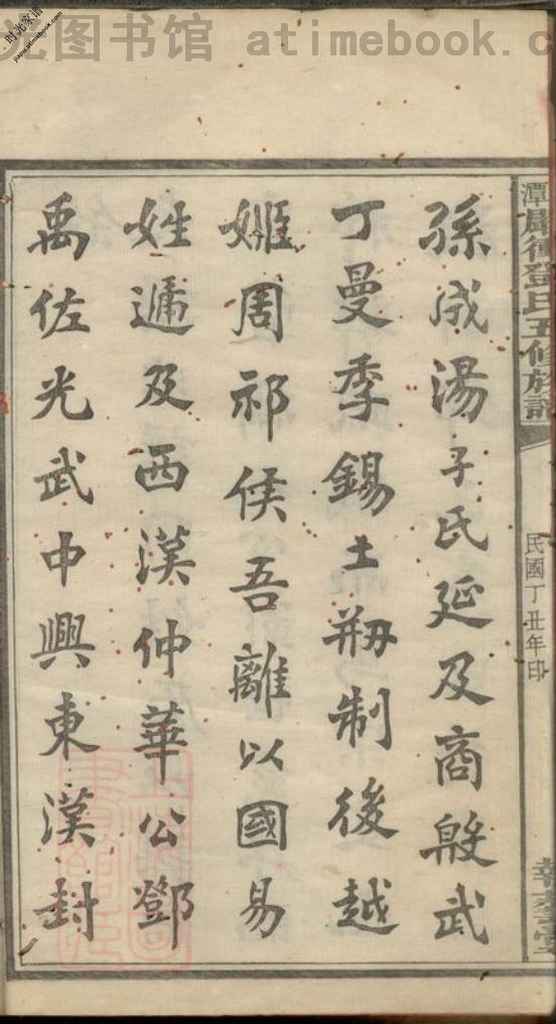 光图书馆 atimebook.c
时光家谱
潭 衡鄧氏五修族譜
民國丁丑年印
孫成湯子氏延及商殷武
丁曼季錫土剏制後越
姬周祁侯吾離以國易
姓遞及西漢仲華公鄧
禹佐光武中興東漢封